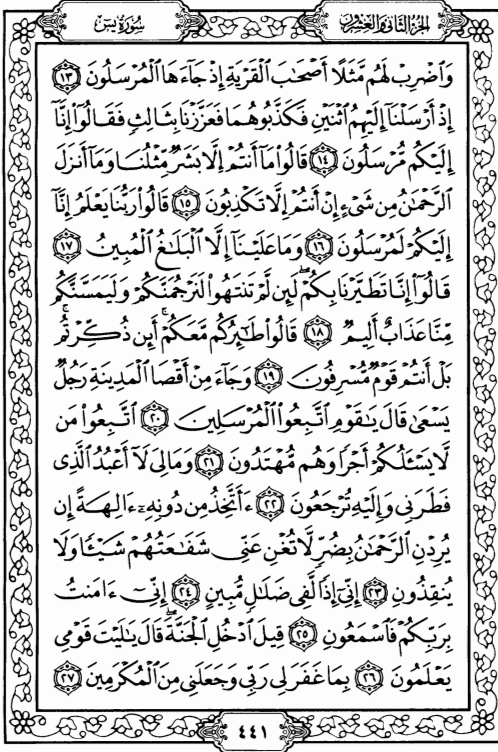 الجزء الثاني والعشرون
سورة يس
وَاضْرِبْ لَهُم مَّثَلًا أَصْحَٰبَ الْقَرْيَةِ إِذْ جَآءَهَا الْمُرْسَلُونَ ١٣
إِذْ أَرْسَلْنَآ إِلَيْهِمُ اثْنَيْنِ فَكَذَّبُوهُمَا فَعَزَّزْنَا بِثَالِثٍ فَقَالُوٓا۟ إِنَّآ
إِلَيْكُم مُّرْسَلُونَ ١٤ قَالُوا۟ مَآ أَنتُمْ إِلَّا بَشَرٌ مِّثْلُنَا وَمَآ أَنزَلَ
الرَّحْمَٰنُ مِن شَىْءٍ إِنْ أَنتُمْ إِلَّا تَكْذِبُونَ ١٥ قَالُوا۟ رَبُّنَا يَعْلَمُ إِنَّآ
إِلَيْكُمْ لَمُرْسَلُونَ ١٦ وَمَا عَلَيْنَآ إِلَّا الْبَلَٰغُ الْمُبِينُ ١٧
قَالُوٓا۟ إِنَّا تَطَيَّرْنَا بِكُمْ ۖ لَئِن لَّمْ تَنتَهُوا۟ لَنَرْجُمَنَّكُمْ وَلَيَمَسَّنَّكُم
مِّنَّا عَذَابٌ أَلِيمٌ ١٨ قَالُوا۟ طَٰٓئِرُكُم مَّعَكُمْ ۚ أَئِن ذُكِّرْتُم ۚ
بَلْ أَنتُمْ قَوْمٌ مُّسْرِفُونَ ١٩ وَجَآءَ مِنْ أَقْصَا الْمَدِينَةِ رَجُلٌ
يَسْعَىٰ قَالَ يَٰقَوْمِ اتَّبِعُوا۟ الْمُرْسَلِينَ ٢٠ اتَّبِعُوا۟ مَن
لَّا يَسْـَٔلُكُمْ أَجْرًا وَهُم مُّهْتَدُونَ ٢١ وَمَا لِىَ لَآ أَعْبُدُ الَّذِى
فَطَرَنِى وَإِلَيْهِ تُرْجَعُونَ ٢٢ ءَأَتَّخِذُ مِن دُونِهِۦٓ ءَالِهَةً إِن
يُرِدْنِ الرَّحْمَٰنُ بِضُرٍّ لَّا تُغْنِ عَنِّى شَفَٰعَتُهُمْ شَيْـًٔا وَلَا
يُنقِذُونِ ٢٣ إِنِّىٓ إِذًا لَّفِى ضَلَٰلٍ مُّبِينٍ ٢٤ إِنِّىٓ ءَامَنتُ
بِرَبِّكُمْ فَاسْمَعُونِ ٢٥ قِيلَ ادْخُلِ الْجَنَّةَ ۖ قَالَ يَٰلَيْتَ قَوْمِى
يَعْلَمُونَ ٢٦ بِمَا غَفَرَ لِى رَبِّى وَجَعَلَنِى مِنَ الْمُكْرَمِينَ ٢٧
٤٤١